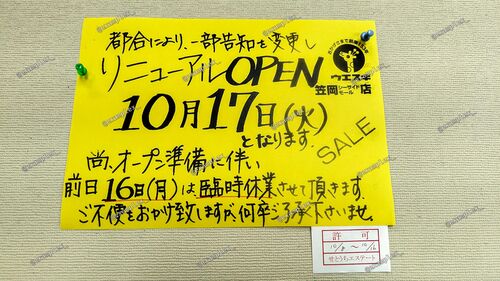 都合により、一部告知を変更し
リニューアルOPEN
おかげさまで創業
ウエスギ
笠岡シーサイドモール店
10月17日(火)
となります。
SALE
尚、オープン準備に伴い
前日16日(月)は臨時休業させて頂きます。
ご不便をおかけ致しますが、何卒ご了承下さいませ。
許可
10/8 〜 10/16
せとうちエステート